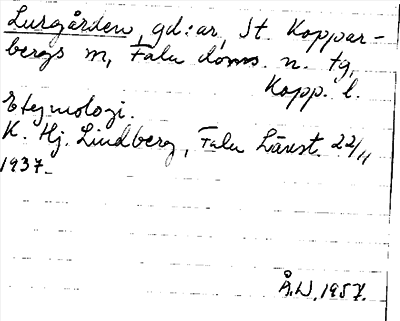 Lurgården, gd:ar, St. Koppar-
bergs m, Falu doms. n. tg,
Kopp. l.
Etymologi.
K. Hj. Lindberg, Falu Länst. 22/11
1937.
Å.W, 1957.